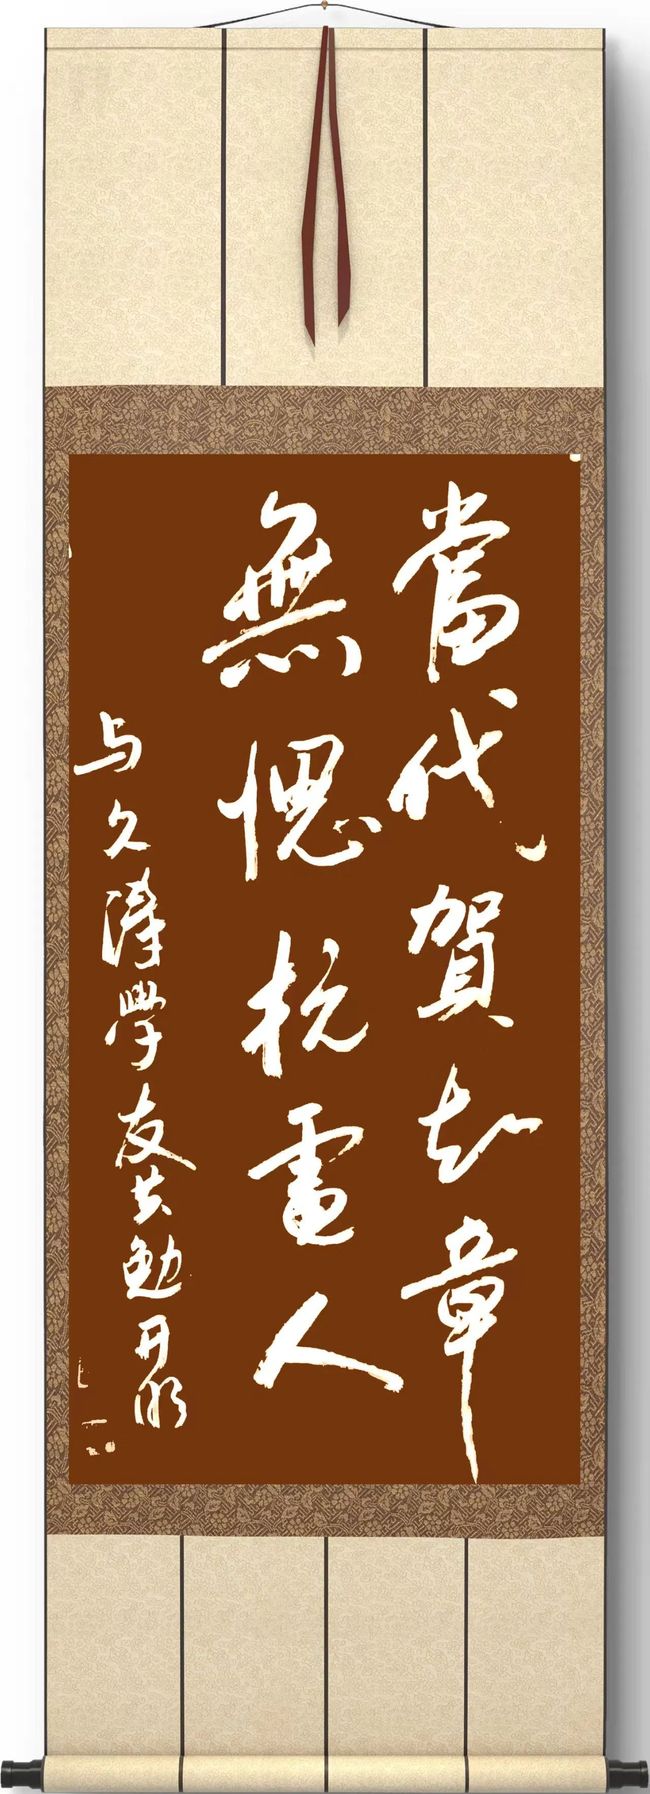 當代賀知章
無愧杭電人
与久澤學友共勉 开明